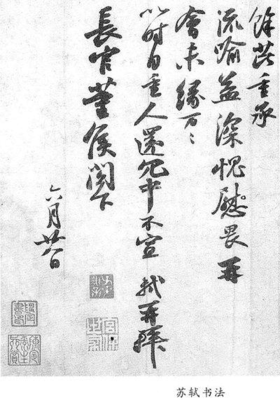 餘芘重承
流喻益深愧慰畏再
會未緣万々
以時自重人還冗中不宣 軾再拜
長官董侯閣下
六月廿八日
苏轼书法